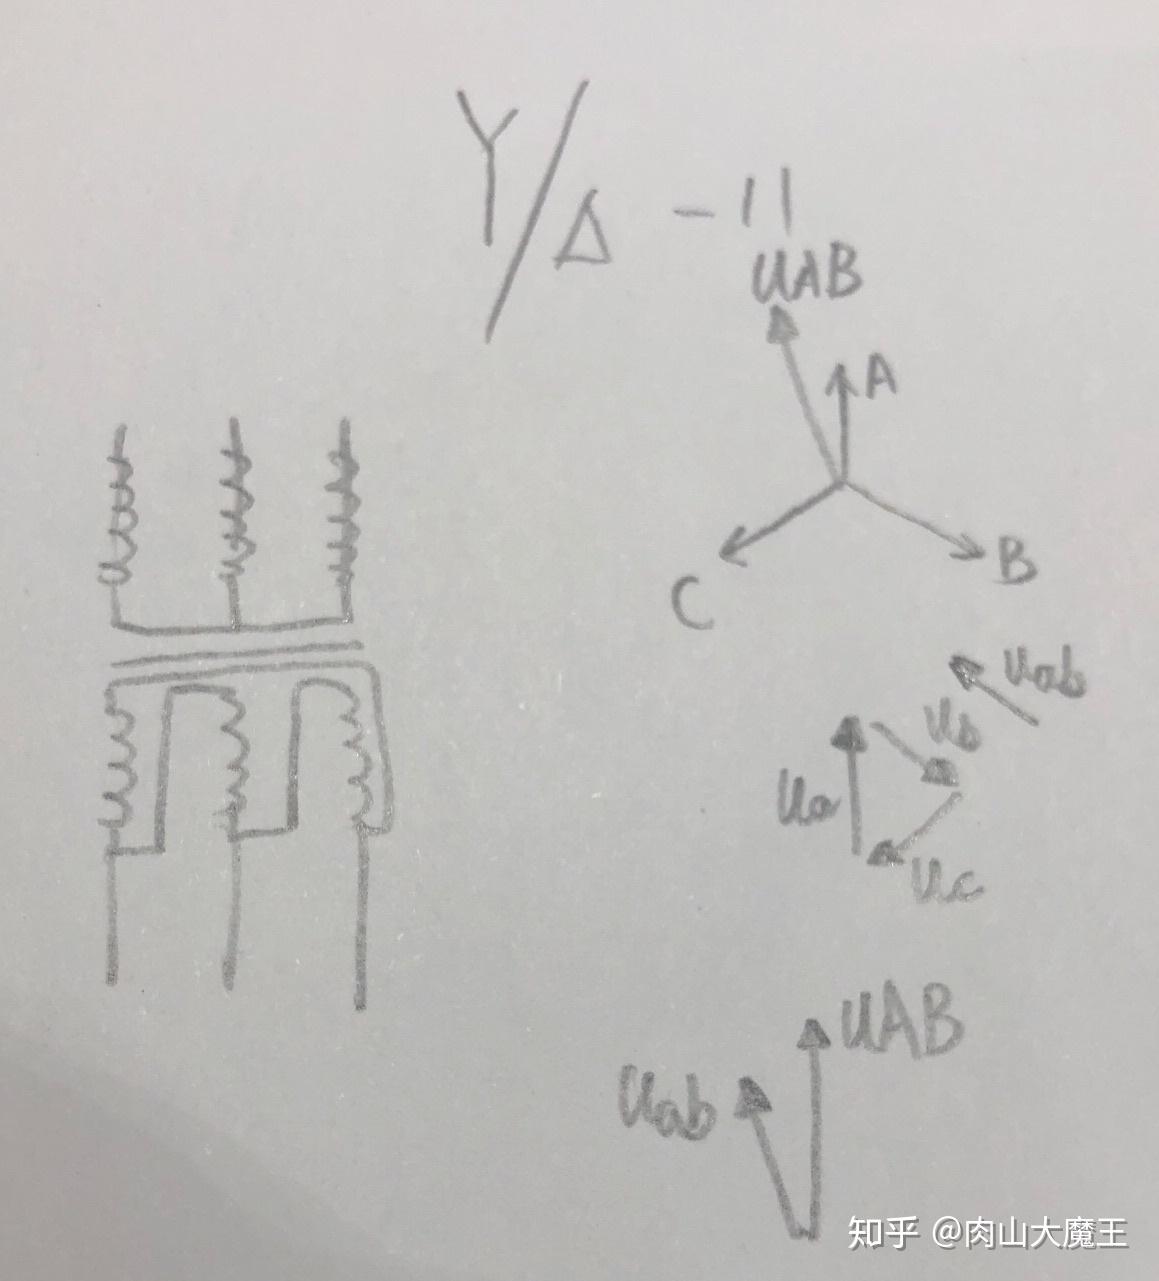 Y/Δ-11
UAB
A
C
B
Uab
Ub
Ua
Uc
UAB
Uab
知乎 @肉山大魔王